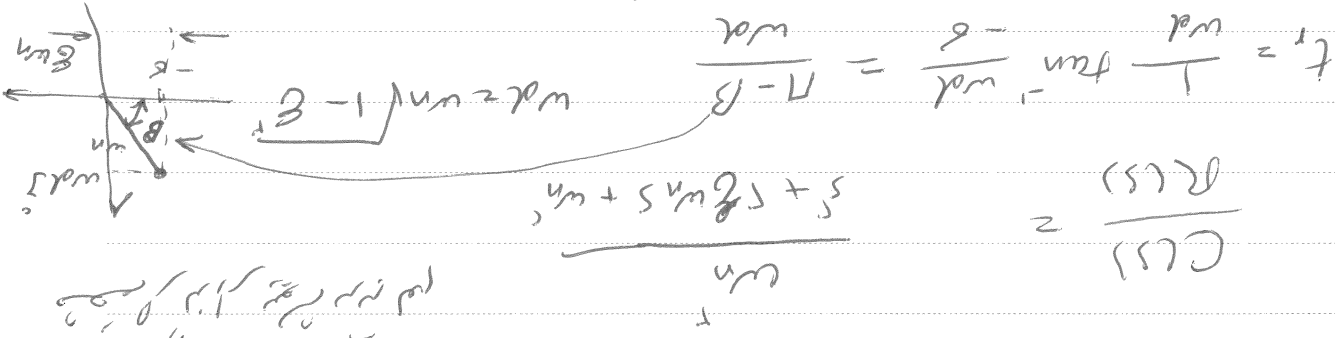 C(s)/R(s) = ωn²/(s² + 2ξωn s + ωn²)
tr = 1/ωd tan⁻¹ ωd/-σ = π-β/ωd
ωd = ωn√(1-ξ²)
ωdj
ωn
β
-σ
ξωn